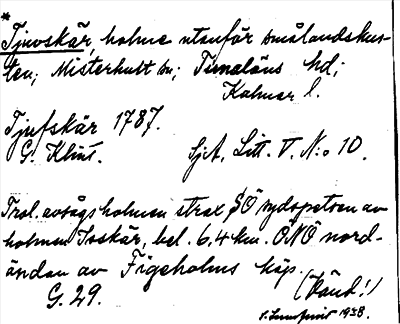 *
Tjuvskär, holme utanför smålandskus-
ten; Misterhult sn; Tunaläns hd;
Kalmar l.
Tjufskär 1787.
G. Klint. SjA, Litt. V. N:o 10.
Trol. avsågs holmen strax SÖ sydspetsen av
holmen Isskär, bel. 6,4 km. ÖNÖ nord-
ändan av Figeholms köp.
G. 29. (Känt!)
1938.